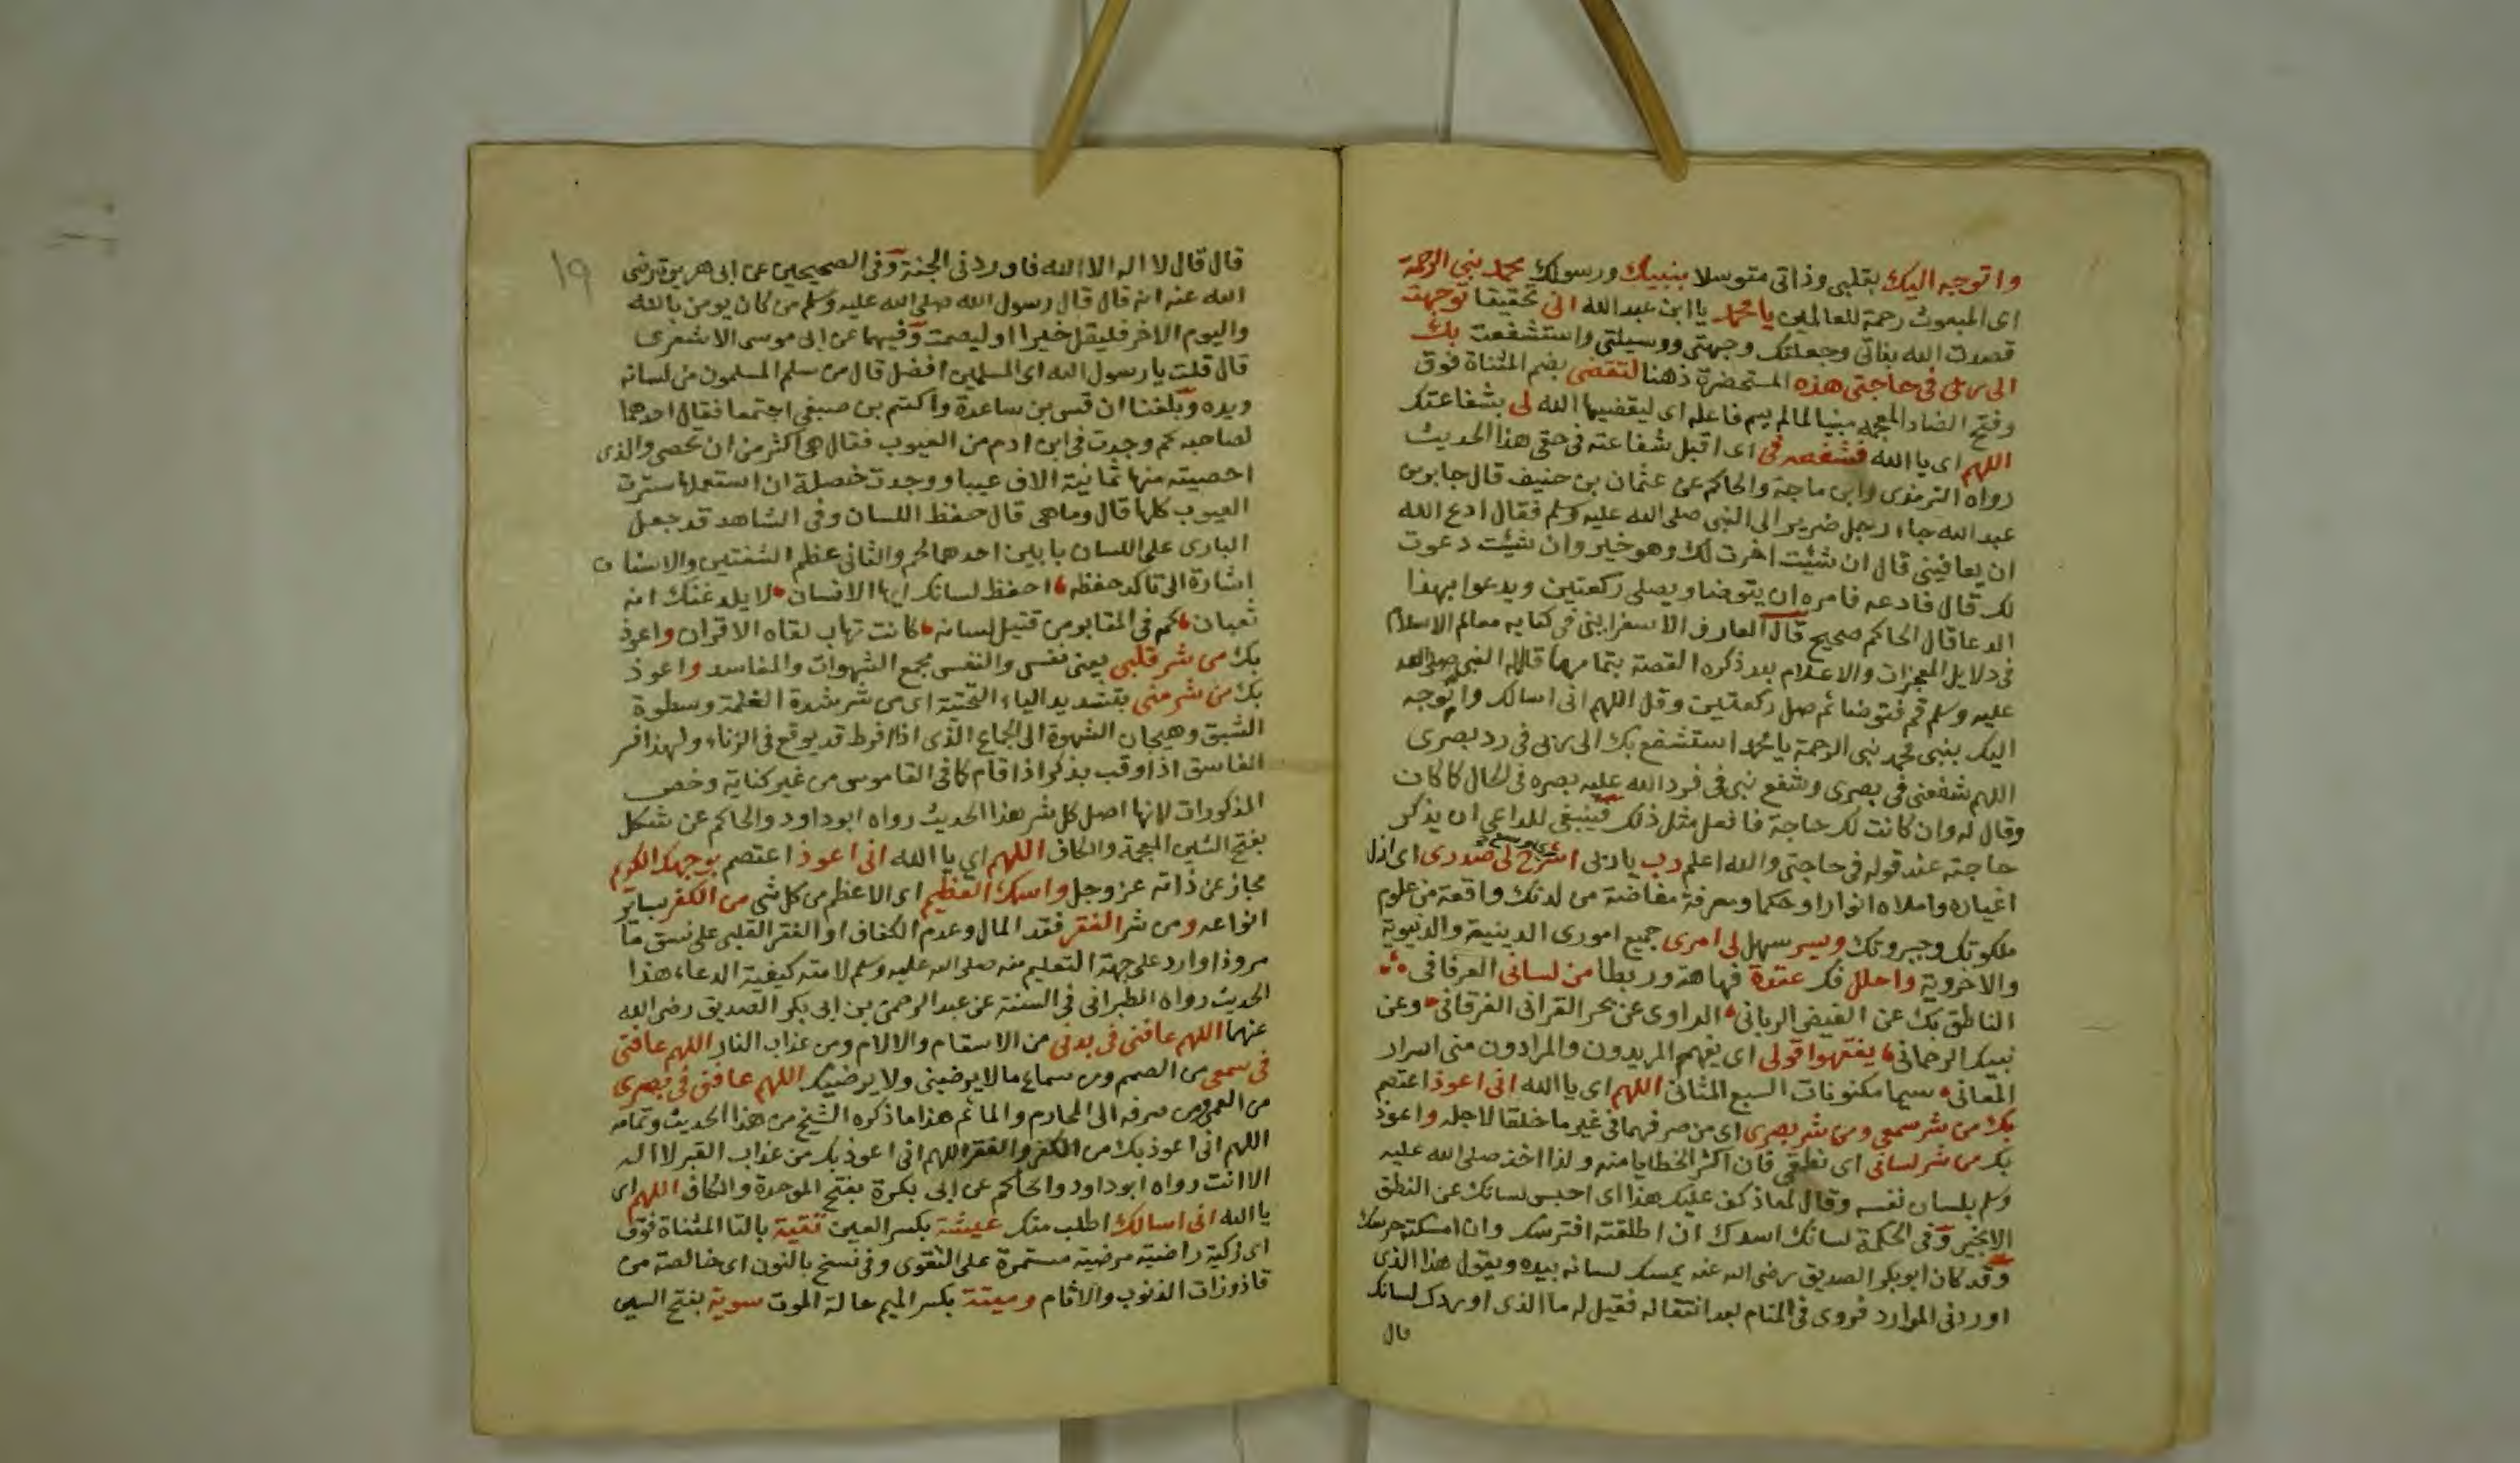 واتوجه اليك بقلبي وذاتي متوسلا بنبيك ورسولك محمد نبي الرحمة
اى المبعوث رحمة للعالمين يا محمد يا ابن عبد الله انى تحقيقا توجهت
قصدت الله بفاتى وجعلتك وجهتى ووسيلتى واستشفعت بك
الى ربى فى حاجتى هذه المستحضرة ذهنا لتقضى بضم المثناة فوق
وفتح الضاد المعجمة مبنيا لما لم يسم فاعله اى ليقضيها الله لى بشفاعتك
اللهم اى يا الله فشفعه فى اى اقبل شفاعته فى حقى هذا الحديث
رواه الترمذى وابن ماجة والحاكم عن عثمان بن حنيف قال جابر بن
عبد الله جاء رجل ضرير الى النبى صلى الله عليه وسلم فقال ادع الله
ان يعافينى قال ان شئت اخرت لك وهو خير وان شئت دعوت
لك قال فادعه فامره ان يتوضا ويصلى ركعتين ويدعوا بهذا
الدعا قال الحاكم صحيح قال العارف الاسفراينى فى كتابه معالم الاسلام
فى دلايل المعجزات والاعلام بعد ذكره القصة بتمامها قال له النبى صلى الله
عليه وسلم قم فتوضا ثم صل ركعتين وقل اللهم انى اسالك واتوجه
اليك بنبى محمد نبى الرحمة يا محمد استشفع بك الى ربى فى رد بصرى
اللهم شفعنى فى بصرى وشفع نبى فى فرد الله عليه بصره فى الحال كما كان
وقال له وان كانت لك حاجة فافعل مثل ذلك فينبغى للداعى ان يذكر
حاجته عند قوله فى حاجتى والله اعلم رب يا ربى اشرح لى صدرى اى ازل
اغياره واملاه انوارا وحكما ومعرفة مفاضة من لدنك واقعة من علوم
ملكوتك وجبروتك ويسر سهل لى امرى جميع امورى الدينية والدنيوية
والاخروية واحلل فك عقدة فهاهة وربطا من لسانى العرفانى
الناطق بك عن الفيض الربانى الراوى عن بحر القرانى الفرقانى وعن
نبيك الرحمانى يفقهوا قولى اى يفهم المريدون والمرادون منى اسرار
المعانى سيما مكنونات السبع المثانى اللهم اى يا الله انى اعوذ اعتصم
بك من شر سمعى ومن شر بصرى اى من صرفهما فى غير ما خلقا لاجله واعوذ
بك من شر لسانى اى نطقى فان اكثر الخطايا منه ولذا اخذ صلى الله عليه
وسلم بلسان نفسه وقال لمعاذ كف عليك هذا اى احبس لسانك عن النطق
الا بخير وفى الحكمة لسانك اسدك ان اطلقته افترسك وان امسكته حرسك
وقد كان ابو بكر الصديق رضى الله عنه يمسك لسانه بيده ويقول هذا الذى
اوردنى الموارد فروى فى المنام بعد انتقاله فقيل له ما الذى اوردك لسانك
قال
١٩
قال قال لا اله الا الله فاوردنى الجنة وفى الصحيحين عن ابى هريرة رضى
الله عنه انه قال قال رسول الله صلى الله عليه وسلم من كان يومن بالله
واليوم الاخر فليقل خيرا او ليصمت وفيهما عن ابى موسى الاشعرى
قال قلت يا رسول الله اى المسلمين افضل قال من سلم المسلمون من لسانه
ويده وبلغنا ان قس بن ساعدة واكتم بن صيفى اجتمعا فقال احدهما
لصاحبه كم وجدت فى ابن ادم من العيوب فقال هى اكثر من ان تحصى والذى
احصيته منها ثمانية الاف عيبا ووجدت خصلة ان استعملها سترت
العيوب كلها قال وما هى قال حفظ اللسان وفى الشاهد قد جعل
البارى على اللسان بابين احدهما لحم والثانى عظم الشفتين والاسنان
اشارة الى تاكد حفظه احفظ لسانك ايها الانسان لا يلدغنك انه
ثعبان كم فى المقابر من قتيل لسانه كانت تهاب لقاه الاقران واعوذ
بك من شر قلبى يعنى نفسى والنفس مجمع الشهوات والمفاسد واعوذ
بك من شر منى بتشديد الياء التحتية اى من شر شدة الغلمة وسطوة
الشبق وهيجان الشهوة الى الجماع الذى اذا فرط قد يوقع فى الزناء ولهذا فسر
الفاسق اذا وقب بذكر اذا قام كما فى القاموس من غير كناية وخص
المذكورات لانها اصل كل شر هذا الحديث رواه ابو داود والحاكم عن شكل
بفتح الشين المعجمة والكاف اللهم اى يا الله انى اعوذ اعتصم بوجهك الكريم
مجاز عن ذاته عز وجل واسمك العظيم اى الاعظم من كل شى من الكفر بساير
انواعه ومن شر الفقر فقد المال وعدم الكفاف او الفقر القلبى على نسق ما
مر وذا وارد على جهة التعليم منه صلى الله عليه وسلم لامته كيفية الدعاء هذا
الحديث رواه الطبرانى فى السنة عن عبد الرحمن بن ابى بكر الصديق رضى الله
عنهما اللهم عافنى فى بدنى من الاسقام والالام ومن عذاب النار اللهم عافنى
فى سمعى من الصمم ومن سماع ما لا يرضينى ولا يرضيك اللهم عافنى فى بصرى
من العمى ومن صرفه الى المحارم والماثم هذا ما ذكره الشيخ من هذا الحديث وتمامه
اللهم انى اعوذ بك من الكفر والفقر اللهم انى اعوذ بك من عذاب القبر لا اله
الا انت رواه ابو داود والحاكم عن ابى بكرة بفتح الموحدة والكاف اللهم اى
يا الله انى اسالك اطلب منك عيشة بكسر العين تقية بالتا المثناة فوق
اى زكية راضية مرضية مستمرة على التقوى وفى نسخ بالنون اى خالصة من
قاذورات الذنوب والاثام وميتة بكسر الميم حالة الموت سوية بفتح السين